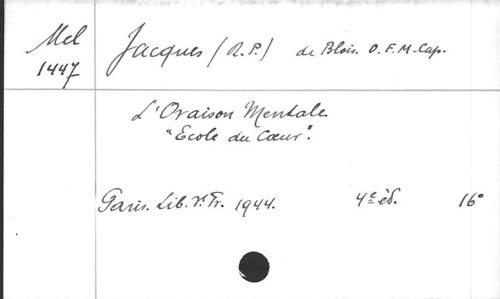 Mel
1447
Jacques (R.P.) de Blois. O.F.M.Cap.
L'Oraison Mentale
"Ecole du Cœur".
Paris. Lib. St. Fr. 1944. 4e éd. 16°